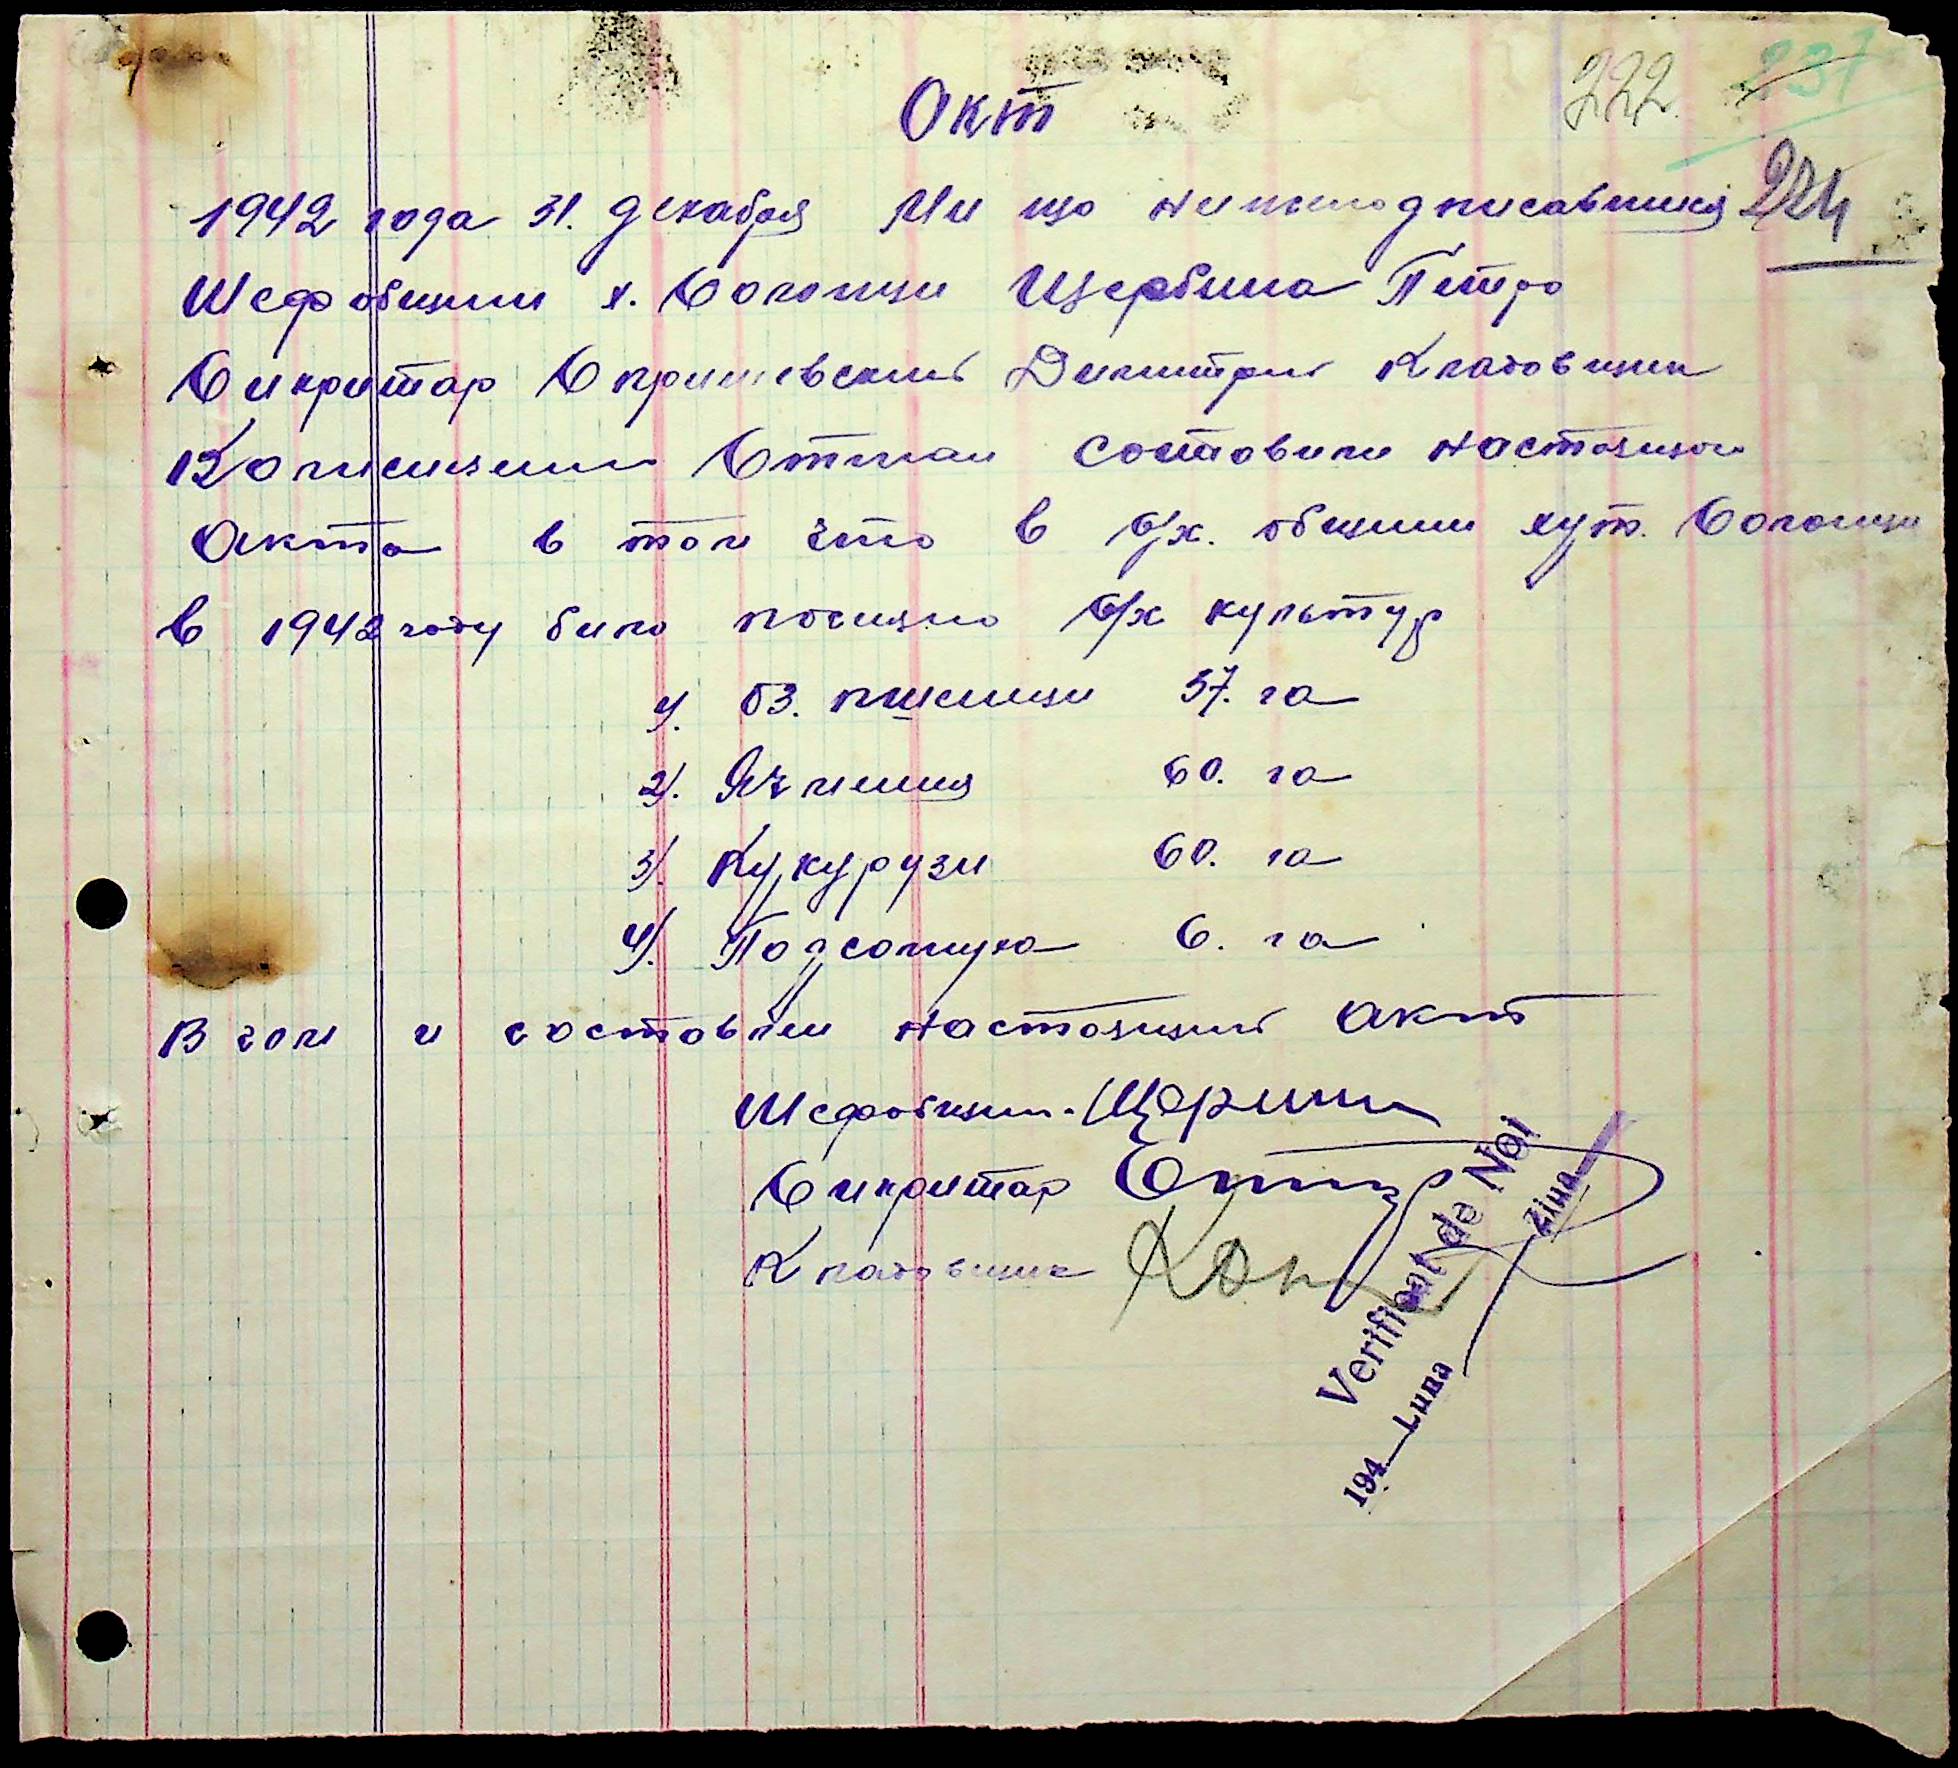 Окт
222 237
1942 года 31. декабря Ми що нижеподписавшися 224
Шеф общини х. Солонци Щербина Петро
Сикритар Опришевский Димитрий Кладовщик
Степан составили настоящои
Окта в том что в с/х. общини хут. Солонци
в 1942 году било посияно с/х культур
1). оз. пшеници 37. га
2). Ячменя 60. га
3). Кукурузи 60. га
4). Подсолнуха 6. га
В чом и составлен настоящий акт
Шеф общин.
Сикритар
Кладовщик
Verificat de Noi
194 Luna Ziua